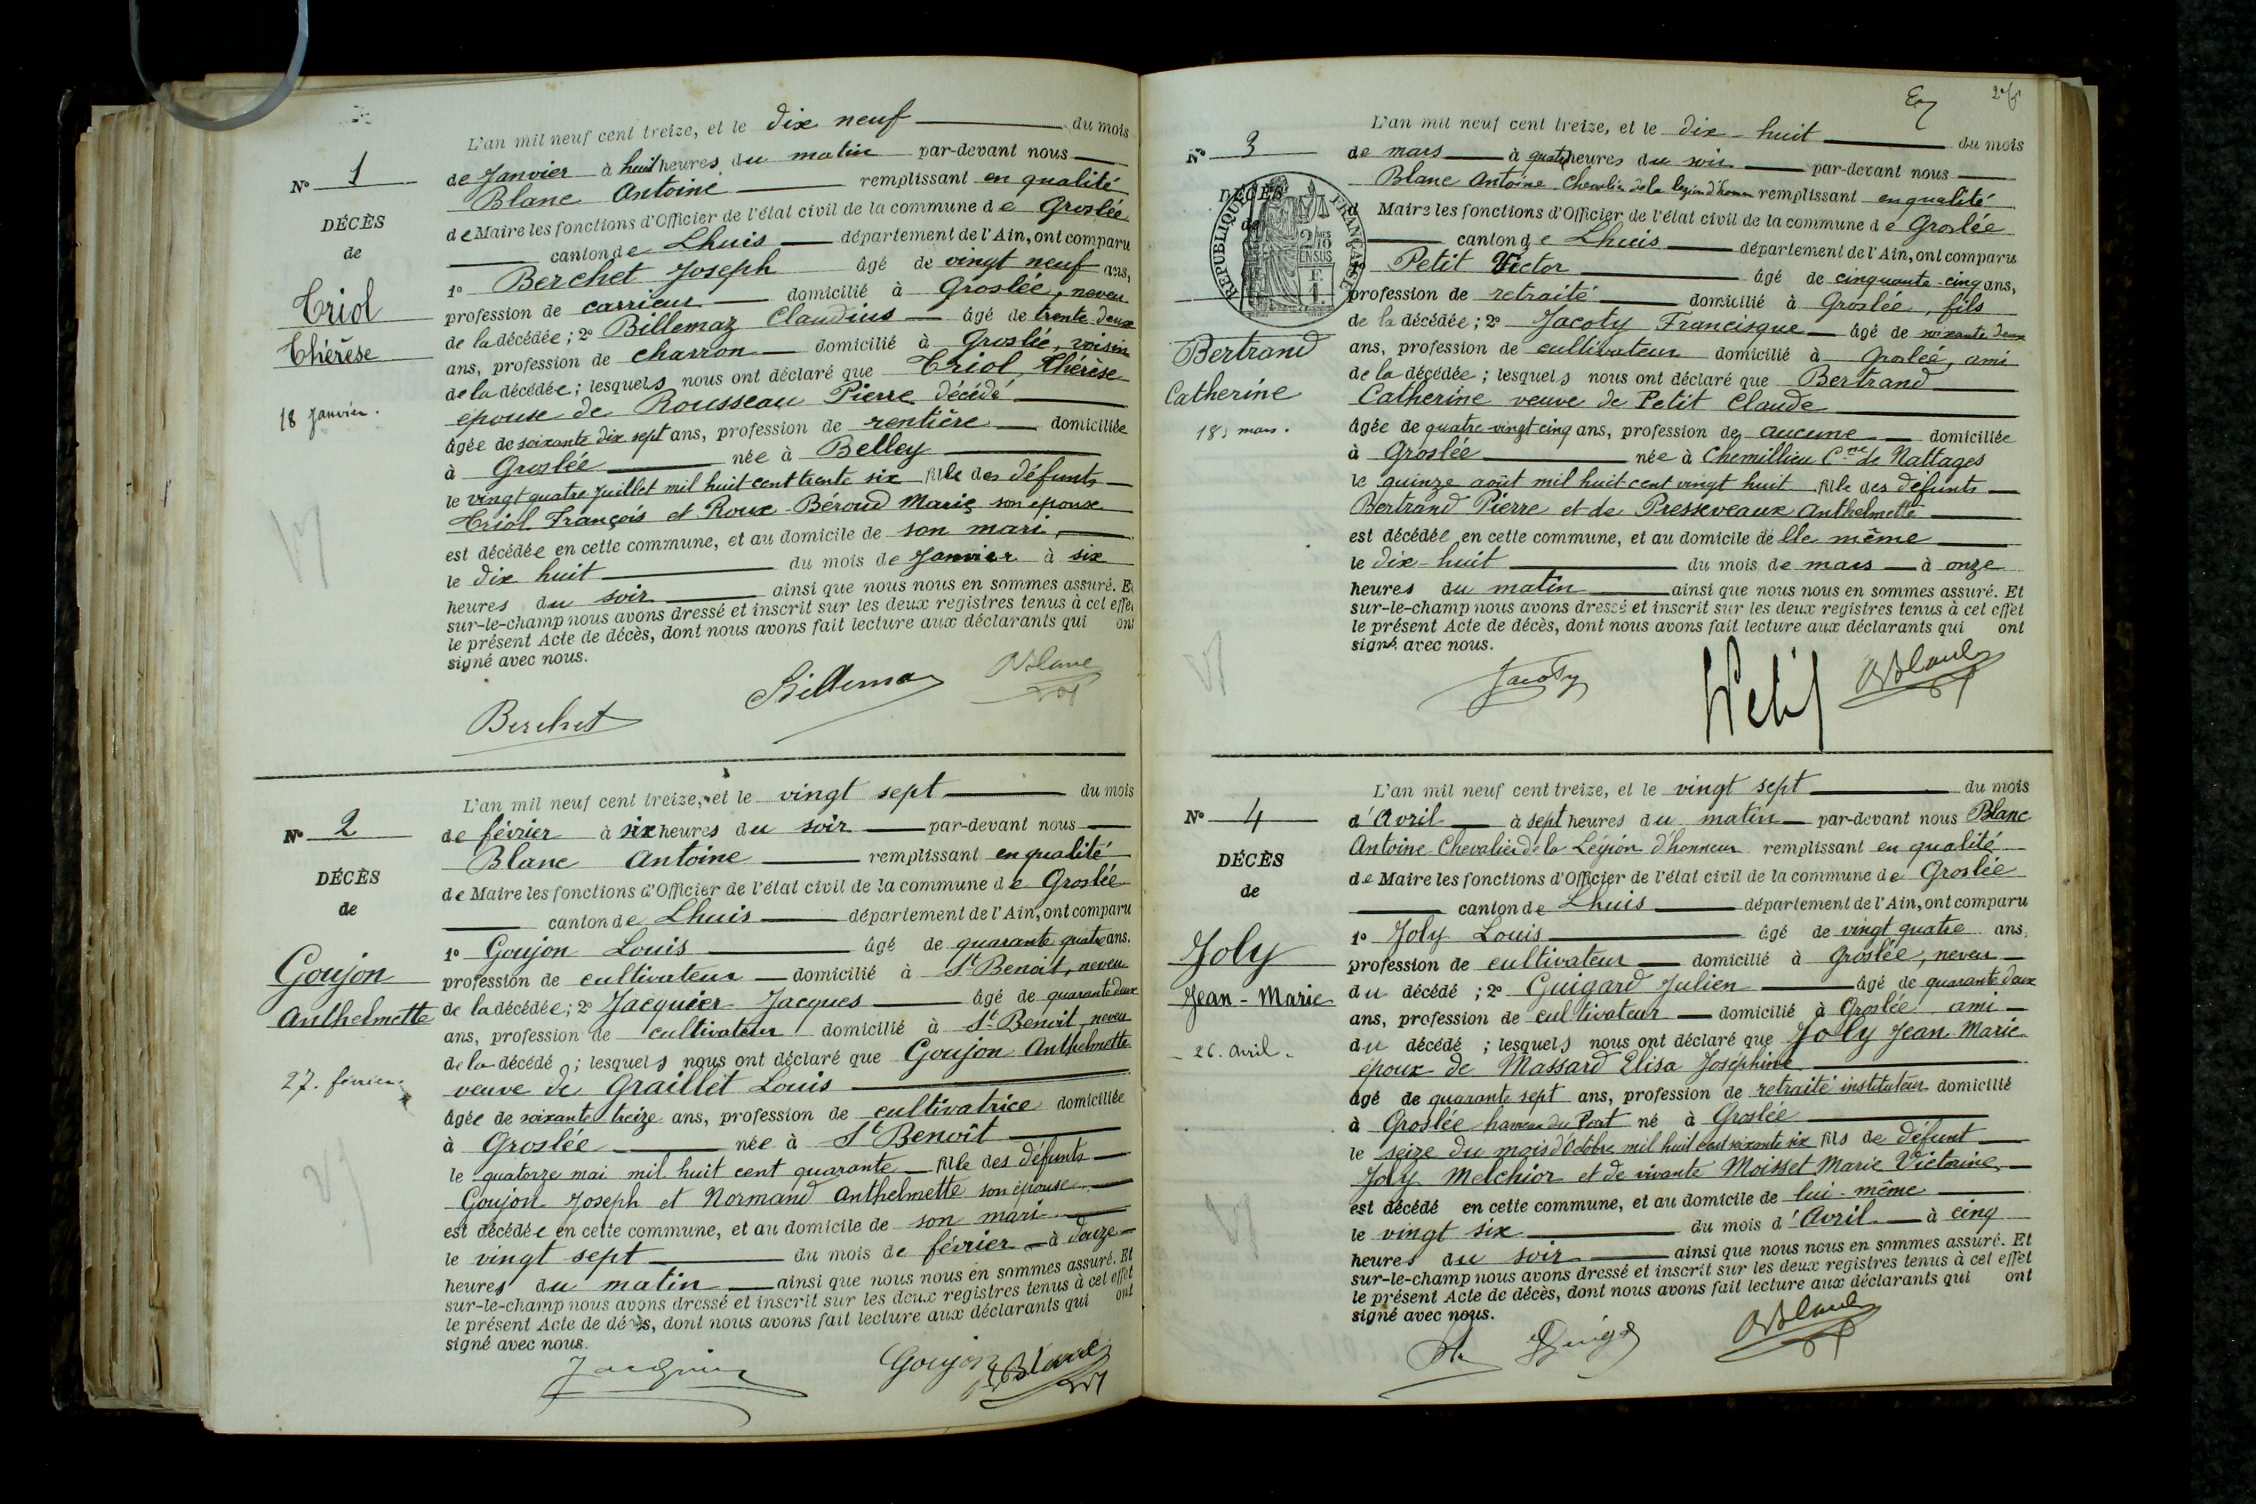 L'an mil neuf cent treize, et le dix neuf du mois
de Janvier à huit heures du matin par-devant nous
Blanc Antoine remplissant en qualité
de Maire les fonctions d'Officier de l'état civil de la commune de Groslée
canton de Lhuis département de l'Ain, ont comparu
1º Berchet Joseph âgé de vingt neuf ans,
profession de carrieur domicilié à Groslée, neveu
de la décédée; 2º Billemaz Claudius âgé de trente deux
ans, profession de charron domicilié à Groslée, voisin
de la décédée; lesquels nous ont déclaré que Triol Thérèse
epouse de Rousseau Pierre décédé
âgée de soixante dix sept ans, profession de rentière domiciliée
à Groslée née à Belley
le vingt quatre Juillet mil huit cent trente six fille des défunts
Triol François et Roux-Béroud Marie son épouse
est décédée en cette commune, et au domicile de son mari,
le dix huit du mois de Janvier à six
heures du soir ainsi que nous nous en sommes assuré. Et
sur-le-champ nous avons dressé et inscrit sur les deux registres tenus à cet effet
le présent Acte de décès, dont nous avons fait lecture aux déclarants qui ont
signé avec nous.
Berchet Billemaz ABlanc
Nº 1
DÉCÈS
de
Triol
Thérèse
18 Janvier.
L'an mil neuf cent treize, et le vingt sept du mois
de février à six heures du soir par-devant nous
Blanc Antoine remplissant en qualité
de Maire les fonctions d'Officier de l'état civil de la commune de Groslée
canton de Lhuis département de l'Ain, ont comparu
1º Goujon Louis âgé de quarante quatre ans.
profession de cultivateur domicilié à St Benoit, neveu
de la décédée; 2º Jacquier Jacques âgé de quarante deux
ans, profession de cultivateur domicilié à St Benoit, neveu
de la décédé; lesquels nous ont déclaré que Goujon Anthelmette
veuve de Graillet Louis
âgée de soixante treize ans, profession de cultivatrice domiciliée
à Groslée née à St Benoît
le quatorze mai mil huit cent quarante fille des défunts
Goujon Joseph et Normand Anthelmette son épouse
est décédée en cette commune, et au domicile de son mari
le vingt sept du mois de février à douze
heures du matin ainsi que nous nous en sommes assuré. Et
sur-le-champ nous avons dressé et inscrit sur les deux registres tenus à cet effet
le présent Acte de décès, dont nous avons fait lecture aux déclarants qui ont
signé avec nous.
Jacquier Goujon ABlanc
Nº 2
DÉCÈS
de
Goujon
Anthelmette
27. février.
L'an mil neuf cent treize, et le dix-huit du mois
de mars à quatre heures du soir par-devant nous
Blanc Antoine Chevalier de la légion d'honn remplissant en qualité
d Maire les fonctions d'Officier de l'état civil de la commune de Groslée
canton de Lhuis département de l'Ain, ont comparu
1º Petit Victor âgé de cinquante-cinq ans,
profession de retraité domicilié à Groslée, fils
de la décédée; 2º Jacoty Francisque âgé de soixante deux
ans, profession de cultivateur domicilié à Groslée, ami
de la décédée; lesquels nous ont déclaré que Bertrand
Catherine veuve de Petit Claude
âgée de quatre-vingt cinq ans, profession de aucune domiciliée
à Groslée née à Chemillieu Cne de Nattages
le quinze août mil huit cent vingt huit fille des défunts
Bertrand Pierre et de Presseveaux Anthelmette
est décédée en cette commune, et au domicile de lle même
le dix-huit du mois de mars à onze
heures du matin ainsi que nous nous en sommes assuré. Et
sur-le-champ nous avons dressé et inscrit sur les deux registres tenus à cet effet
le présent Acte de décès, dont nous avons fait lecture aux déclarants qui ont
signé avec nous.
Jacoty VPetit ABlanc
Nº 3
DÉCÈS
de
RÉPUBLIQUE FRANÇAISE
2/10 EN SUS
Bertrand
Catherine
18 mars.
L'an mil neuf cent treize, et le vingt sept du mois
d'Avril à sept heures du matin par-devant nous Blanc
Antoine Chevalier de la Légion d'honneur remplissant en qualité
de Maire les fonctions d'Officier de l'état civil de la commune de Groslée
canton de Lhuis département de l'Ain, ont comparu
1º Joly Louis âgé de vingt quatre ans,
profession de cultivateur domicilié à Groslée, neveu
du décédé; 2º Guigard Julien âgé de quarante deux
ans, profession de cultivateur domicilié à Groslée ami
du décédé; lesquels nous ont déclaré que Joly Jean Marie
époux de Massard Elisa Joséphine
âgé de quarante sept ans, profession de retraité instituteur domicilié
à Groslée hameau du Port né à Groslée
le seize du mois d'Octobre mil huit cent soixante six fils de défunt
Joly Melchior et de vivante Moisset Marie Victorine
est décédé en cette commune, et au domicile de lui-même
le vingt six du mois d'Avril à cinq
heures du soir ainsi que nous nous en sommes assuré. Et
sur-le-champ nous avons dressé et inscrit sur les deux registres tenus à cet effet
le présent Acte de décès, dont nous avons fait lecture aux déclarants qui ont
signé avec nous.
ABlanc
Nº 4
DÉCÈS
de
Joly
Jean-Marie
26. Avril.